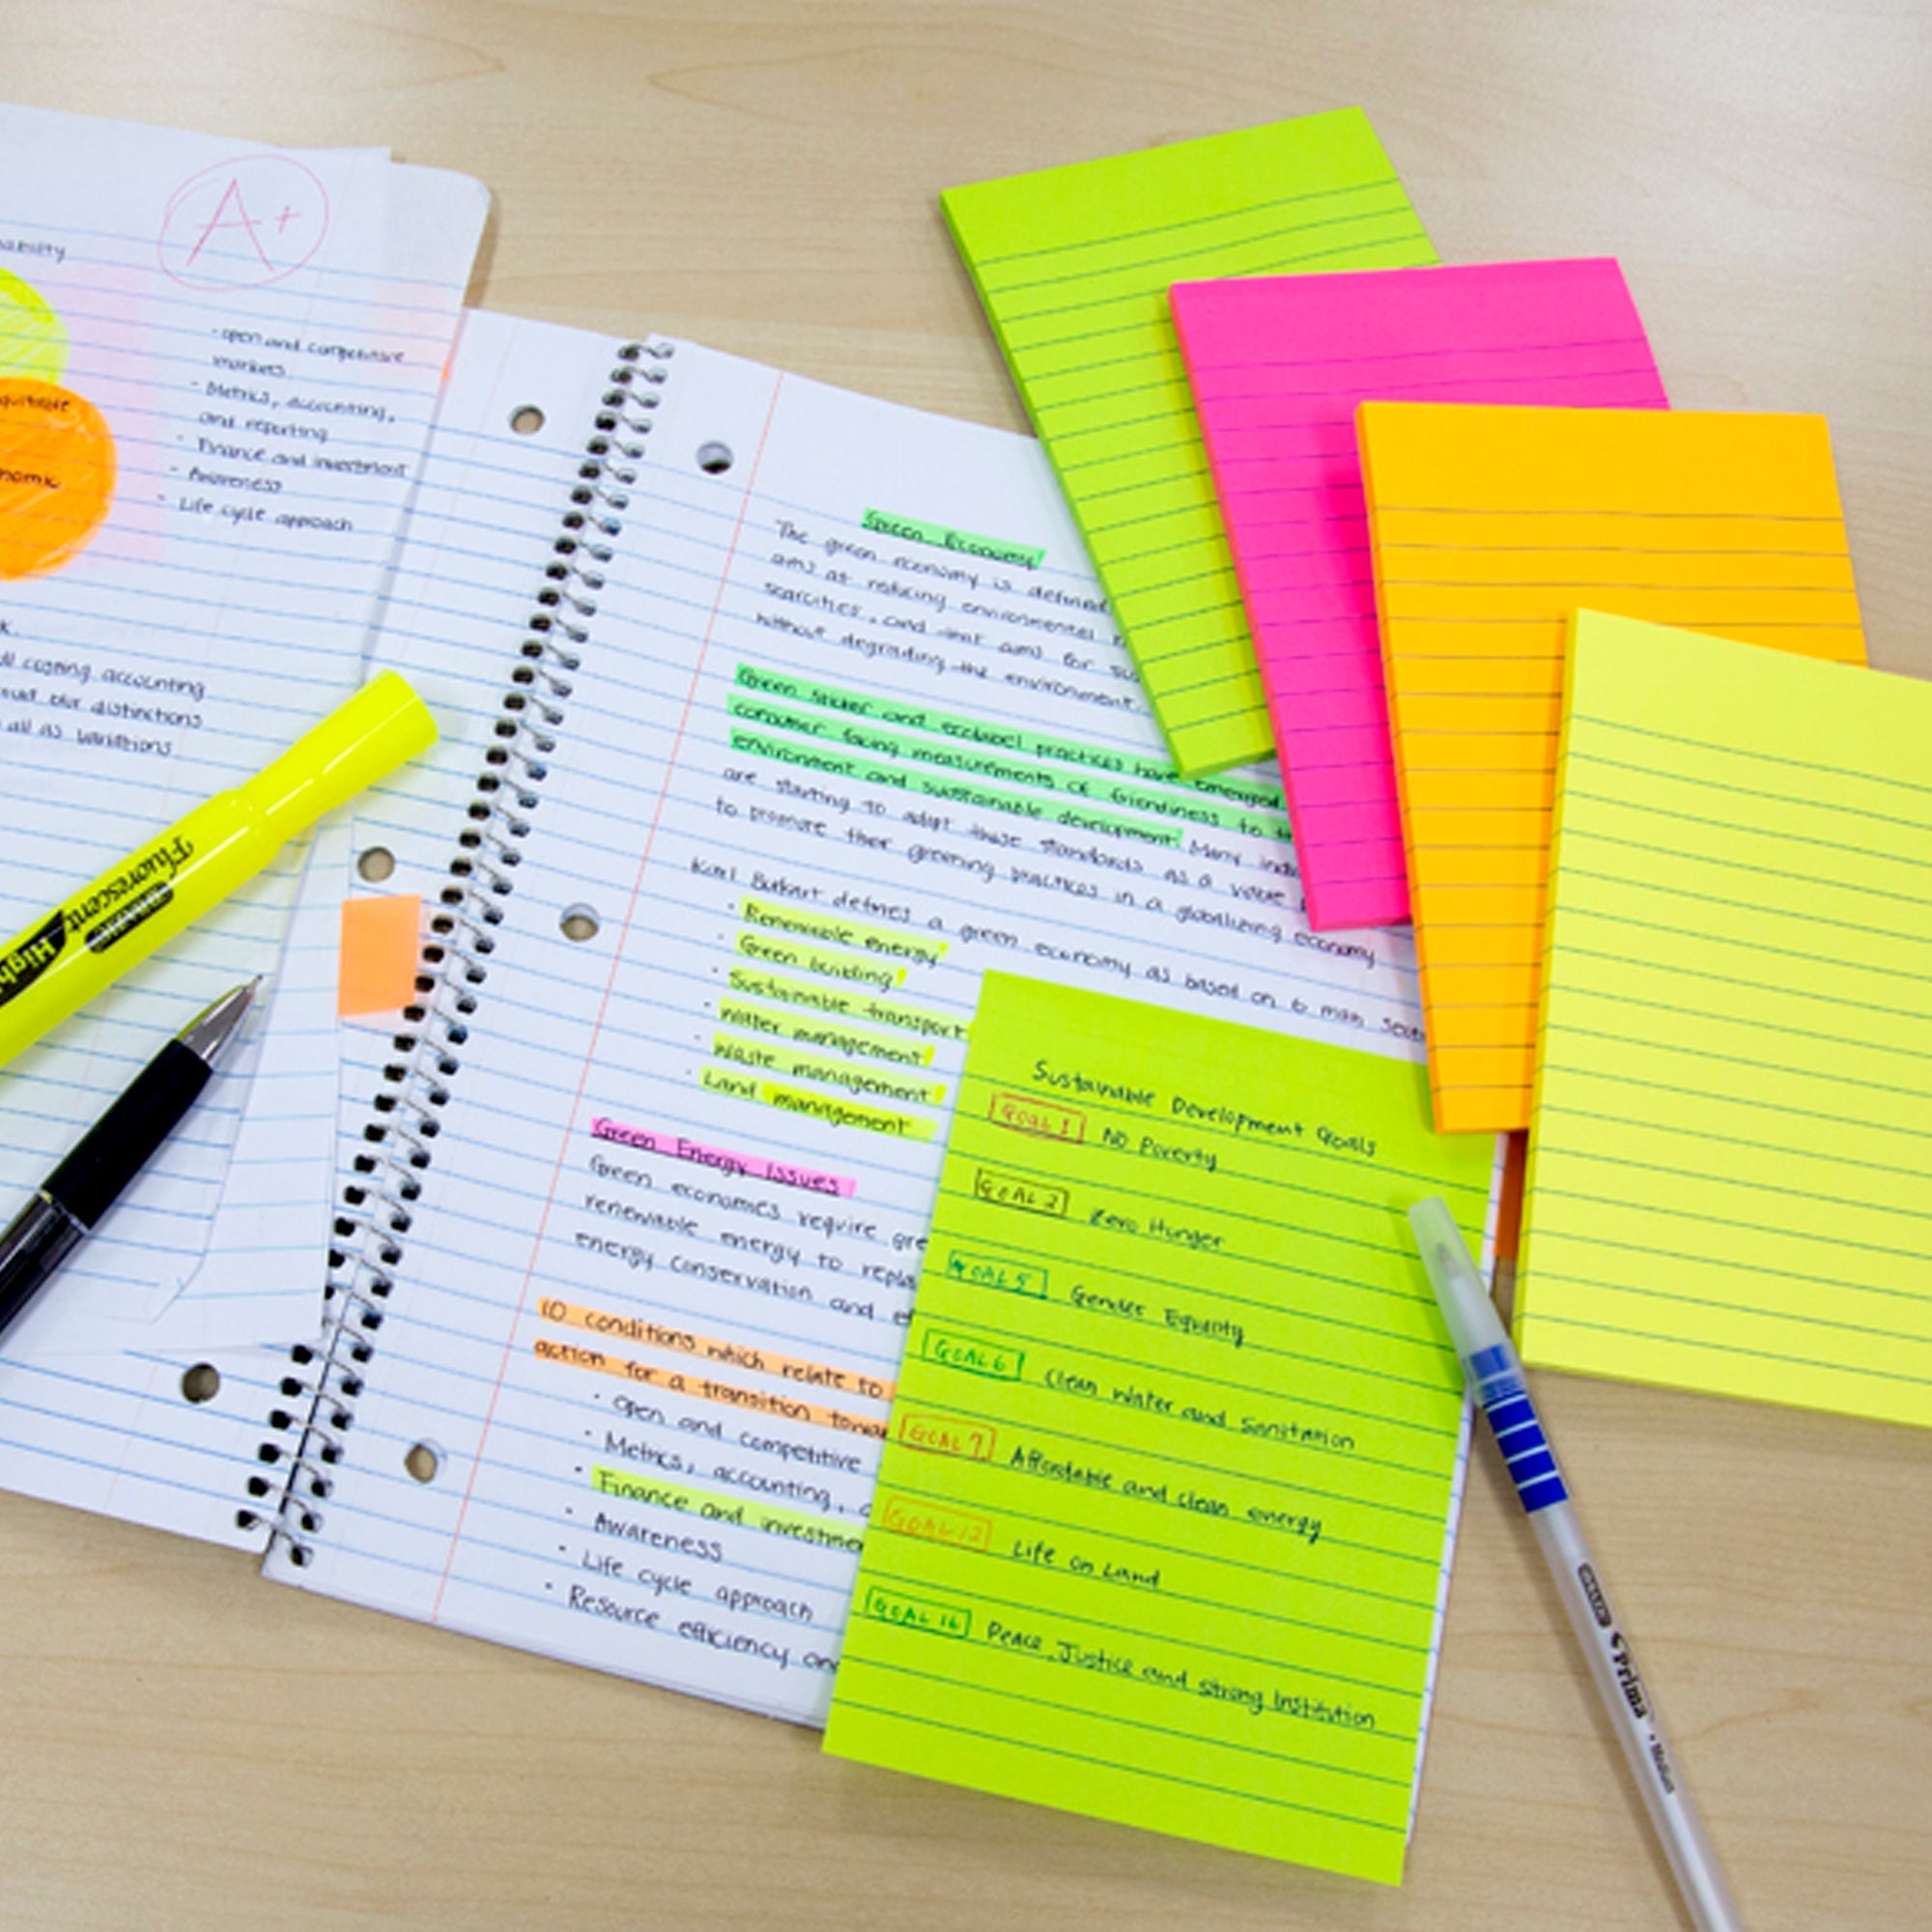 A+
- open and competitive
markets
- Metrics, accounting,
and reporting
- Finance and investment
- Awareness
- Life cycle approach
costing accounting
blur distinctions
all as variations
Fluorescent
Green Economy
The green economy is defined
aims at reducing environmental
scarcities, and that aims for
without degrading the environment.
Green sticker and ecolabel practices have emerged
consumer facing measurements of friendliness to
environment and sustainable development. Many
are starting to adopt these standards as a viable
to promote their greening practices in a globalizing economy
Karl Burkart defines a green economy as based on 6 main
- Renewable energy
- Green building
- Sustainable transport
- Water management
- Waste management
- Land management
Green Energy Issues
Green economies require
renewable energy to
energy conservation and
10 conditions which relate to
action for a transition
- Open and competitive
- Metrics, accounting,
- Finance and
- Awareness
- Life cycle approach
- Resource efficiency
Sustainable Development Goals
GOAL 1 No Poverty
GOAL 2 Zero Hunger
GOAL 5 Gender Equality
GOAL 6 Clean Water and Sanitation
GOAL 7 Affordable and clean energy
GOAL 12 Life on Land
GOAL 16 Peace, Justice and strong Institution
Prima • Medium